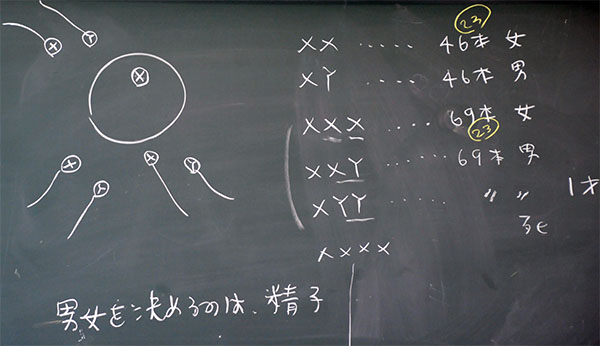 X Y
X
X Y X Y
㉓
XX ····· 46本 女
XY ···· 46本 男
XXX ····· 69本 女
㉓
XXY ······ 69本 男
XYY ····· 〃 〃 1才
死
XXXX
男女を決めるのは、精子